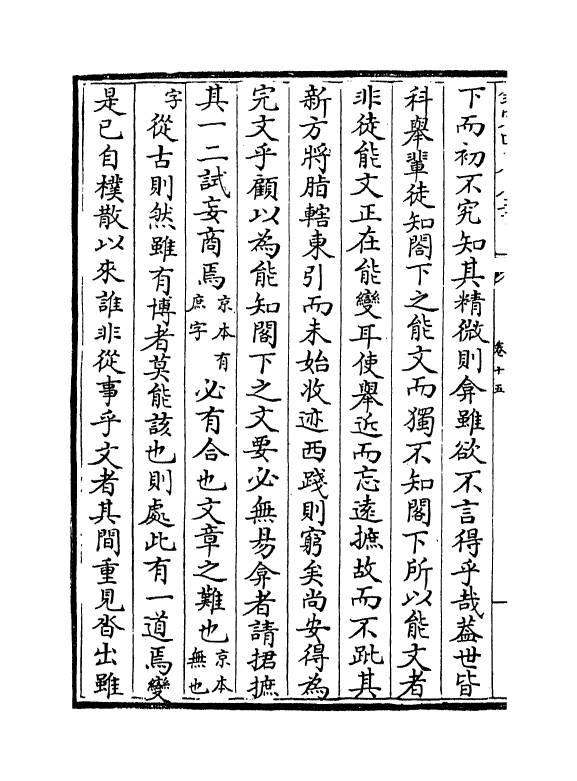 下而初不究知其精微則弇雖欲不言得乎哉葢世皆
科舉輩徒知閤下之能文而獨不知閤下所以能文者
非徒能文正在能變耳使舉近而忘遠摭故而不跐其
新方將脂轄東引而未始收迹西踐則窮矣尚安得為
完文乎顧以為能知閤下之文要必無易弇者請捃摭
其一二試妄商焉京本有庶字必有合也文章之難也京本無也
字從古則然雖有博者莫能該也則處此有一道焉變
是已自樸散以來誰非從事乎文者其間重見沓出雖
卷十五